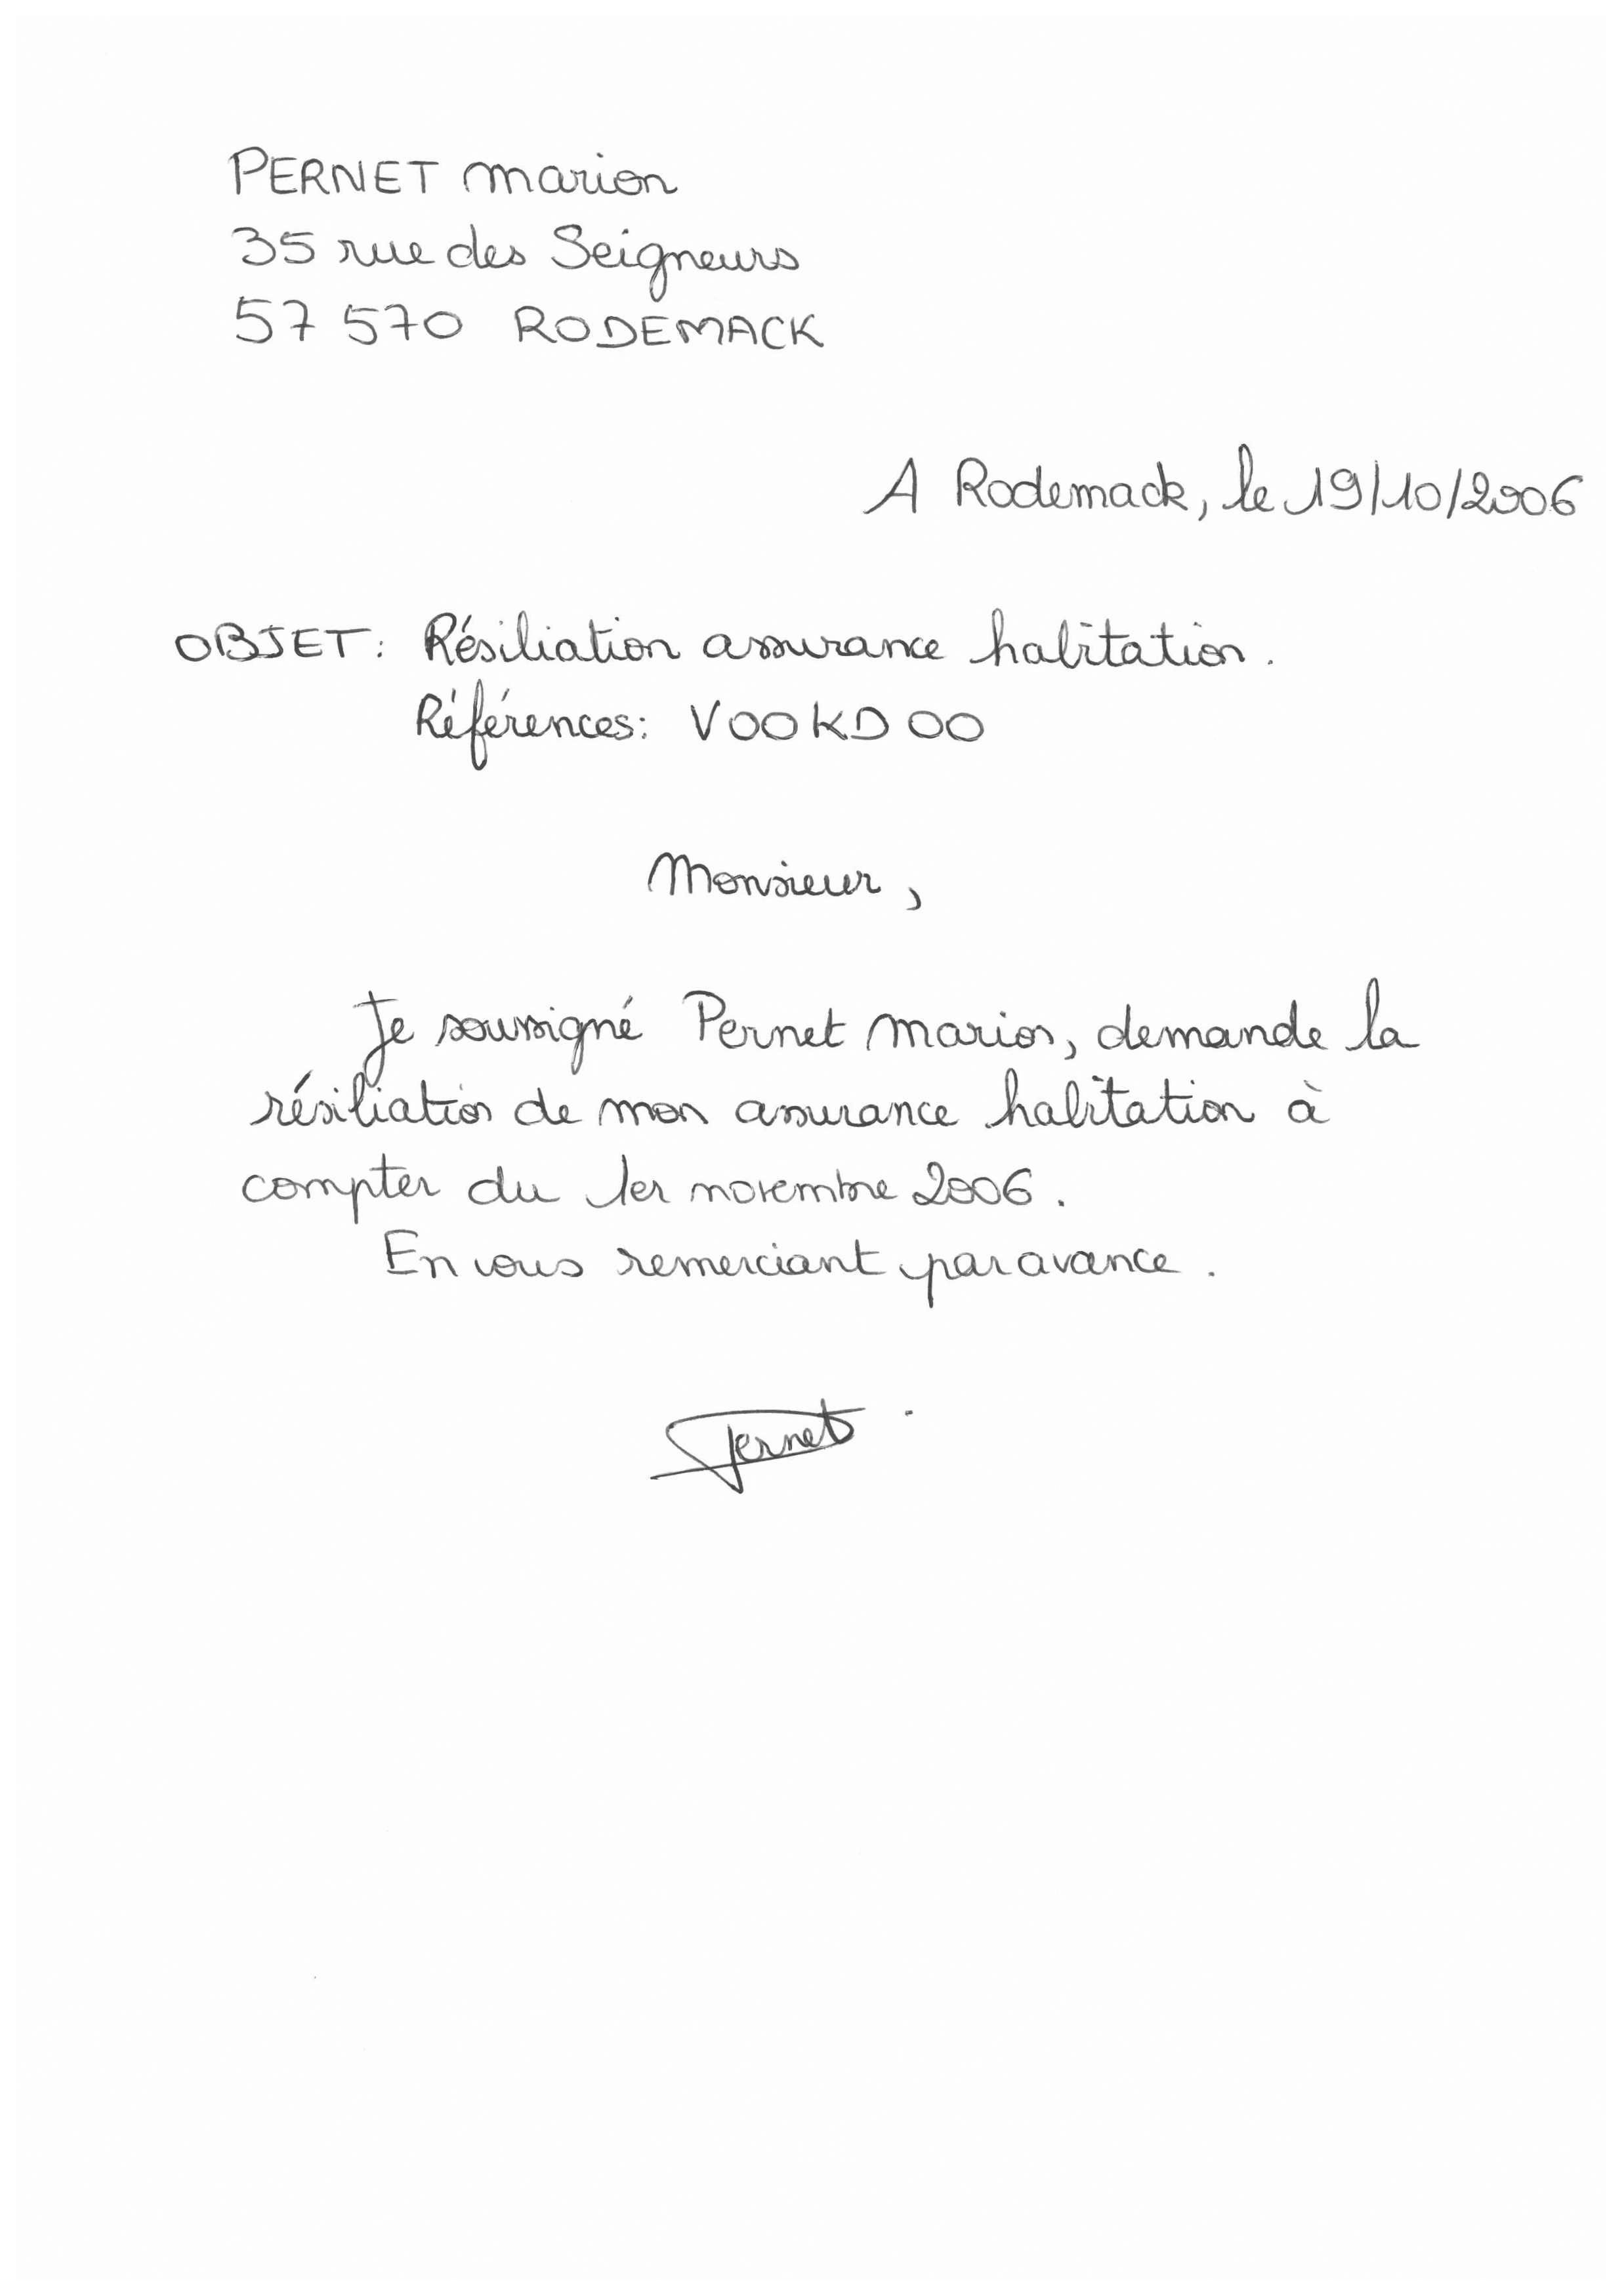 PERNET Marion
35 rue des Seigneurs
57 570 RODEMACK
A Rodemack, le 19/10/2006
OBJET: Résiliation assurance habitation.
Références: VOOKDOO
Monsieur,
Je soussigné Pernet Marion, demande la
résiliation de mon assurance habitation à
compter du 1er novembre 2006.
En vous remerciant par avance.
Pernet